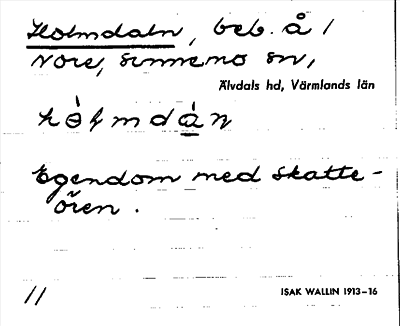 Holmdaln, beb. å /
Nore, Sunnemo sn,
Älvdals hd, Värmlands län
Egendom med skatte-
ören.
11
ISAK WALLIN 1913-16